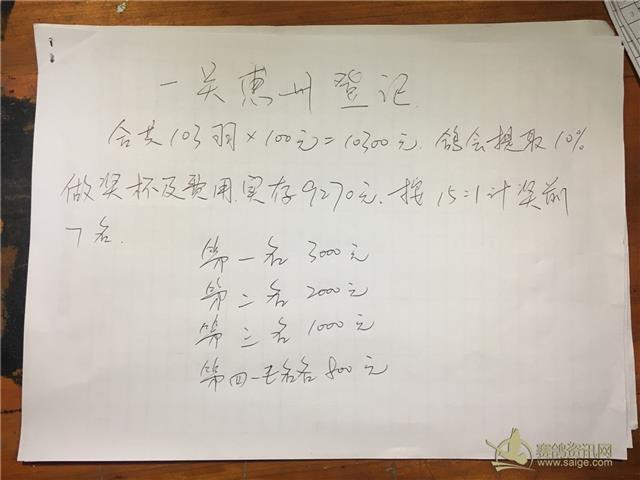 一关惠州登记.
合共103羽×100元=10300元.鸽会提取10%
做奖杯及费用.实存9270元.按15:1计奖前
7名.
第一名 3000元
第二名 2000元
第三名 1000元
第四—七名各800元
赛鸽资讯网
www.saige.com